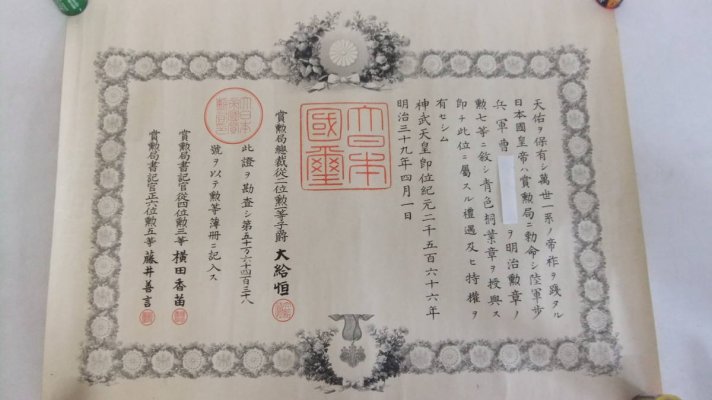 天佑ヲ保有シ萬世一系ノ帝祚ヲ踐タル
日本國皇帝ハ賞勲局ニ勅命シ陸軍歩
兵軍曹 ヲ明治勲章ノ
勲七等ニ敍シ青色桐葉章ヲ授與ス
即チ此位ニ屬スル禮遇及ヒ特權ヲ
有セシム
神武天皇即位紀元二千五百六十六年
明治三十九年四月一日
大日本
國璽
賞勲局總裁從二位勲一等子爵 大給恒
此證ヲ勘査シ第五十万六千四百三十八
號ヲ以テ勲等簿册ニ記入ス
賞勲局書記官從四位勲三等 横田香苗
賞勲局書記官正六位勲五等 藤井善言